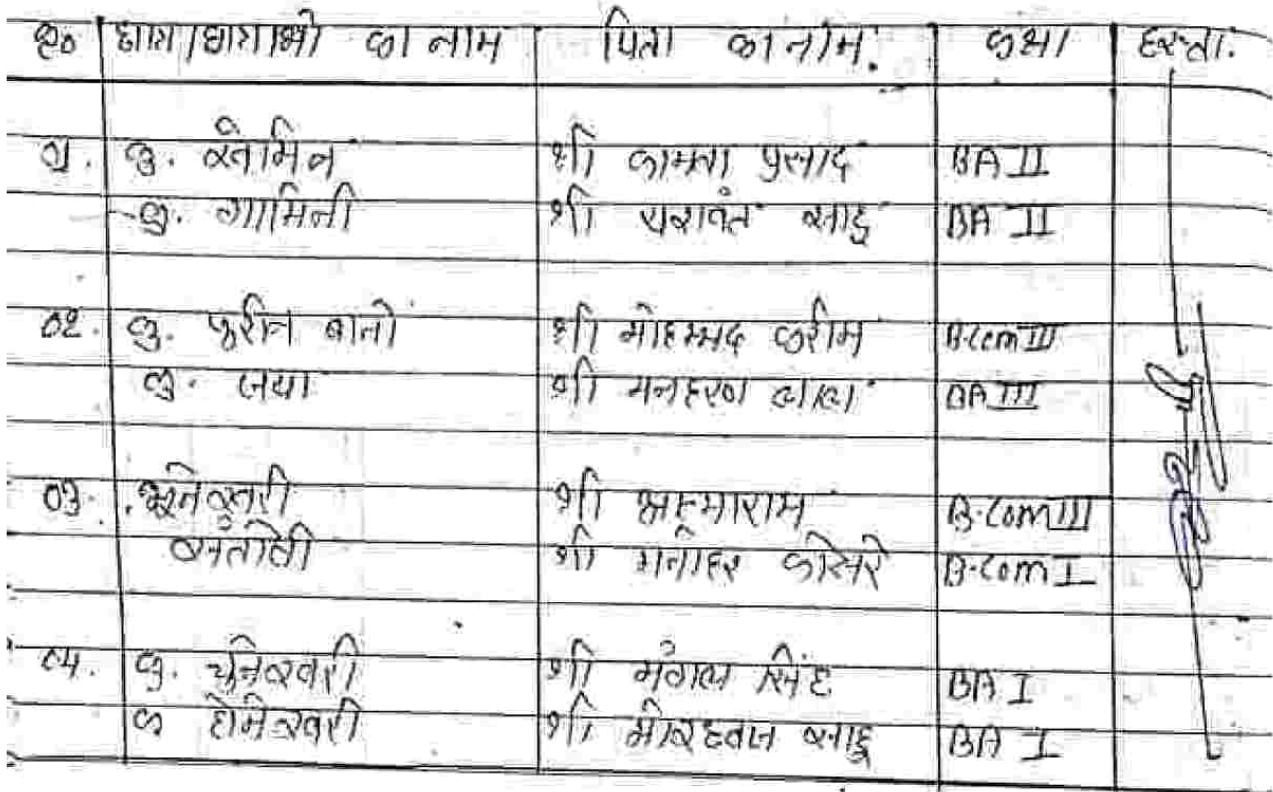 क्र० छात्र/छात्राओं का नाम पिता का नाम. कक्षा हस्ता.
01. कु. खेमिन श्री कामता प्रसाद BA II
कु. गामिनी श्री यशवंत साहू BA II
02. कु. परवीन बानो श्री मोहम्मद करीम B.com III
कु. जया श्री मनहरण लाल BA III
03. श्री आत्माराम B.Com III
श्री मनोहर कोसरे B.Com I
04. कु. श्री मंगल सिंह BA I
कु होमेश्वरी श्री मोरध्वज साहू BA I